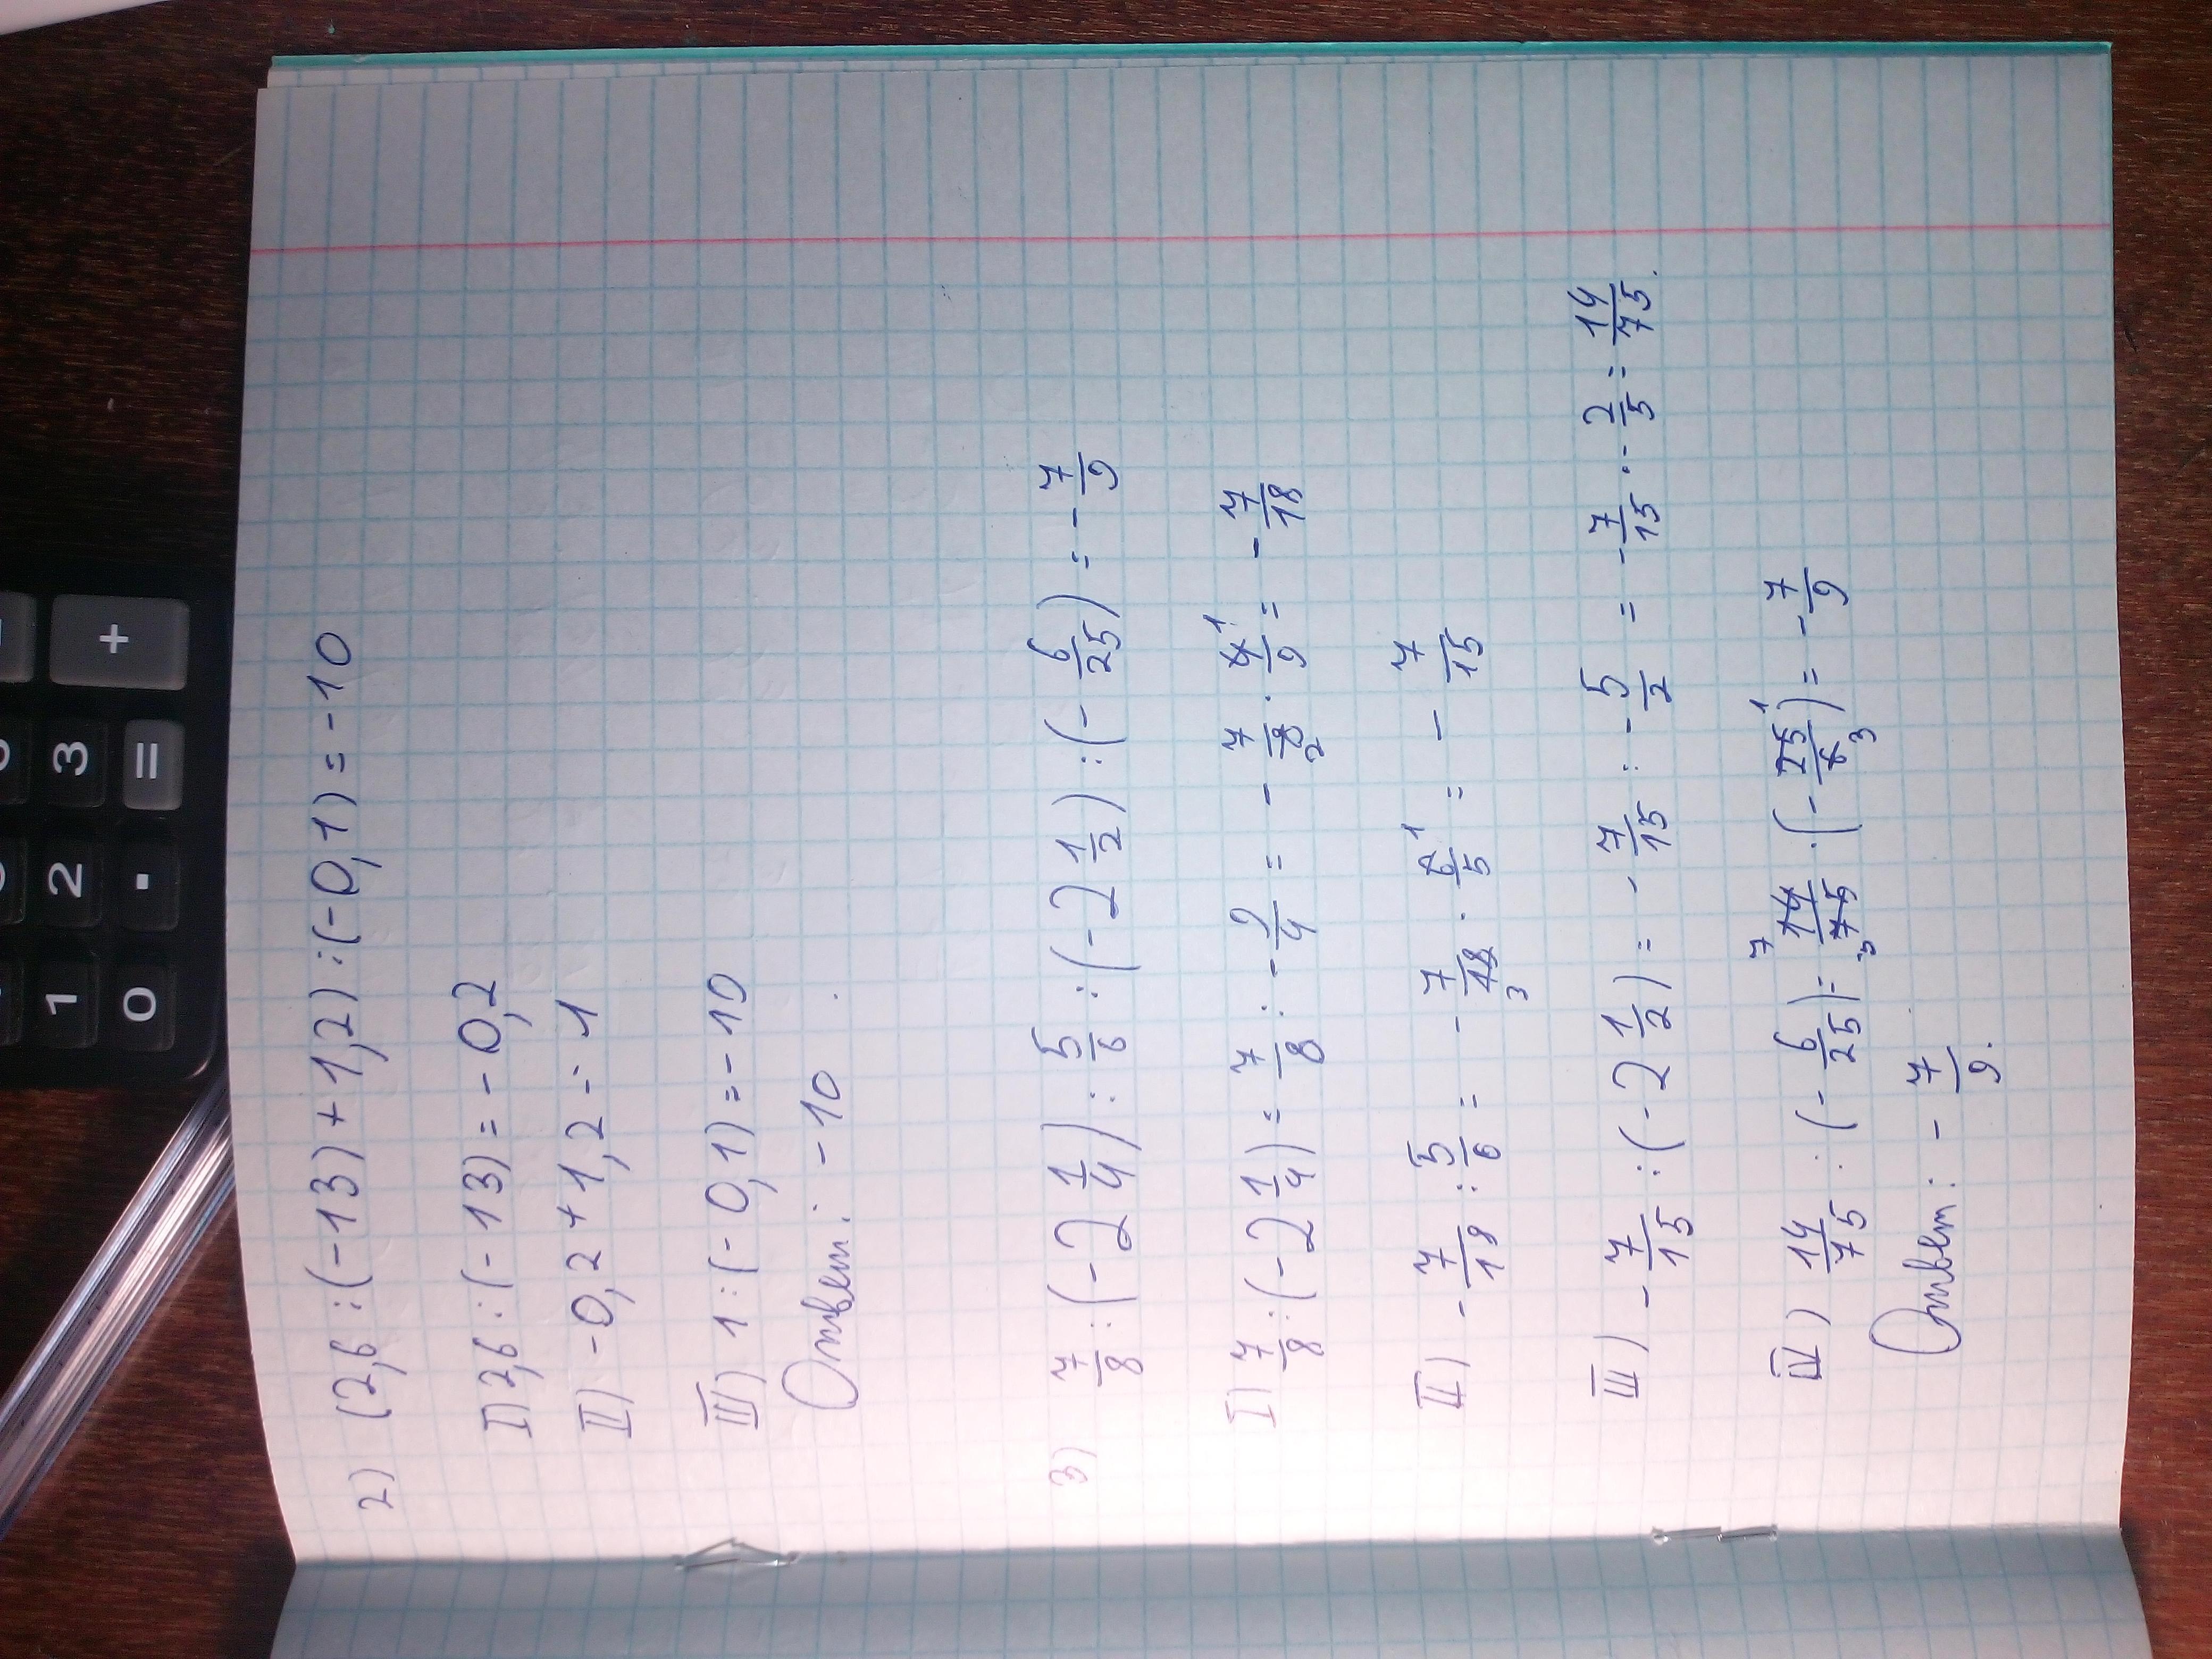 2) (2,6 : (-13) + 1,2) : (-0,1) = -10
I) 2,6 : (-13) = -0,2
II) -0,2 + 1,2 = 1
III) 1 : (-0,1) = -10
Ответ: -10.
3) 7/8 : (-2 1/4) : 5/6 : (-2 1/2) : (- 6/25) = - 7/9
I) 7/8 : (-2 1/4) = 7/8 : - 9/4 = - 7/8 2 · 4/9 1 = - 7/18
II) - 7/18 : 5/6 = - 7/18 3 · 6/5 1 = - 7/15
III) - 7/15 : (-2 1/2) = - 7/15 : - 5/2 = - 7/15 · - 2/5 = 14/75.
IV) 14/75 : (- 6/25) = 7 14/75 3 · (- 25/6 1 3) = - 7/9
Ответ: - 7/9.
+
3
=
2
.
1
0